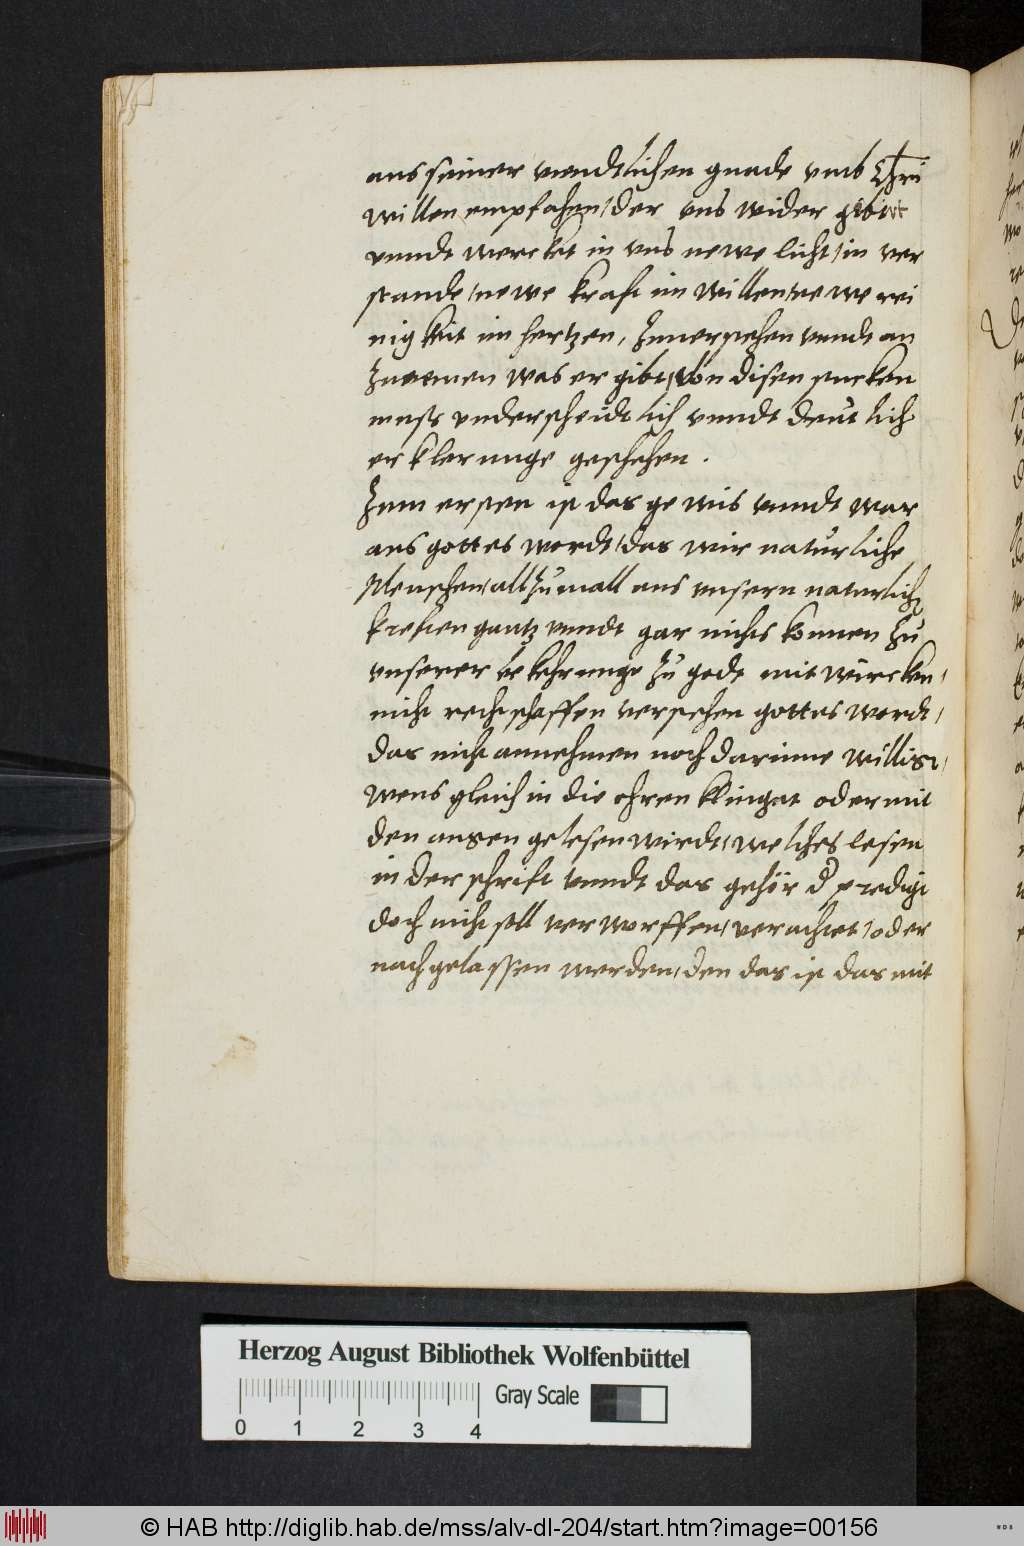 aus seiner unendtlichen gnade umb Chri
willen empfahen / der uns wider gibert
unndt wercket in uns newe licht / in ver
stande / newe kraft im willen / newe rei
nigkeit im hertzen, Zuuerstehen unndt an
Zunemen was er gibt / Von disen stucken
muss underscheidtlich unndt deutlich
erklerunge geschehen .
Zum ersten ist das gewis unndt war
aus gottes wordt / das wir naturliche
Menschen / allzumall aus unsern naturlich
kreften gantz unndt gar nichts konnen zu
unserer bekehrunge zu gode mit wircken /
nicht rechtschaffen verstehen gottes wordt /
das nicht annehmen noch darinne willist /
wens gleich in die ohren klinget oder mit
den augen gelesen wirdt / welches lesen
in der schrift unndt das gehör d predigt
doch nicht soll verworffen / verachtet / oder
nachgelassen werden / den das ist das mit
Herzog August Bibliothek Wolfenbüttel
Gray Scale
0 1 2 3 4
© HAB http://diglib.hab.de/mss/alv-dl-204/start.htm?image=00156